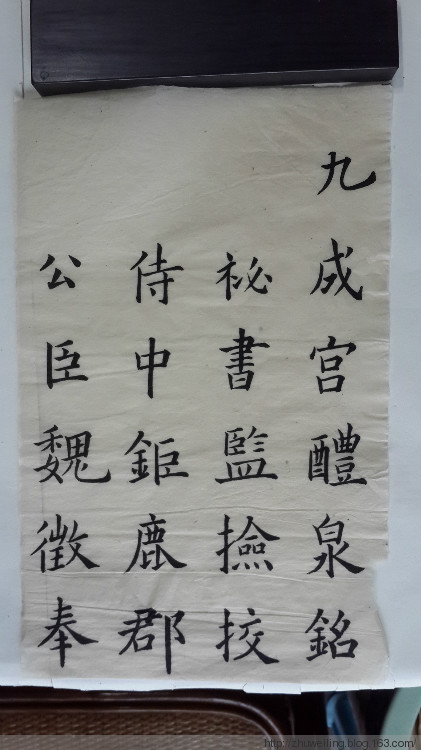 九成宫醴泉銘
祕書監撿挍
侍中鉅鹿郡
公臣魏徵奉
http://zhuweiling.blog.163.com/